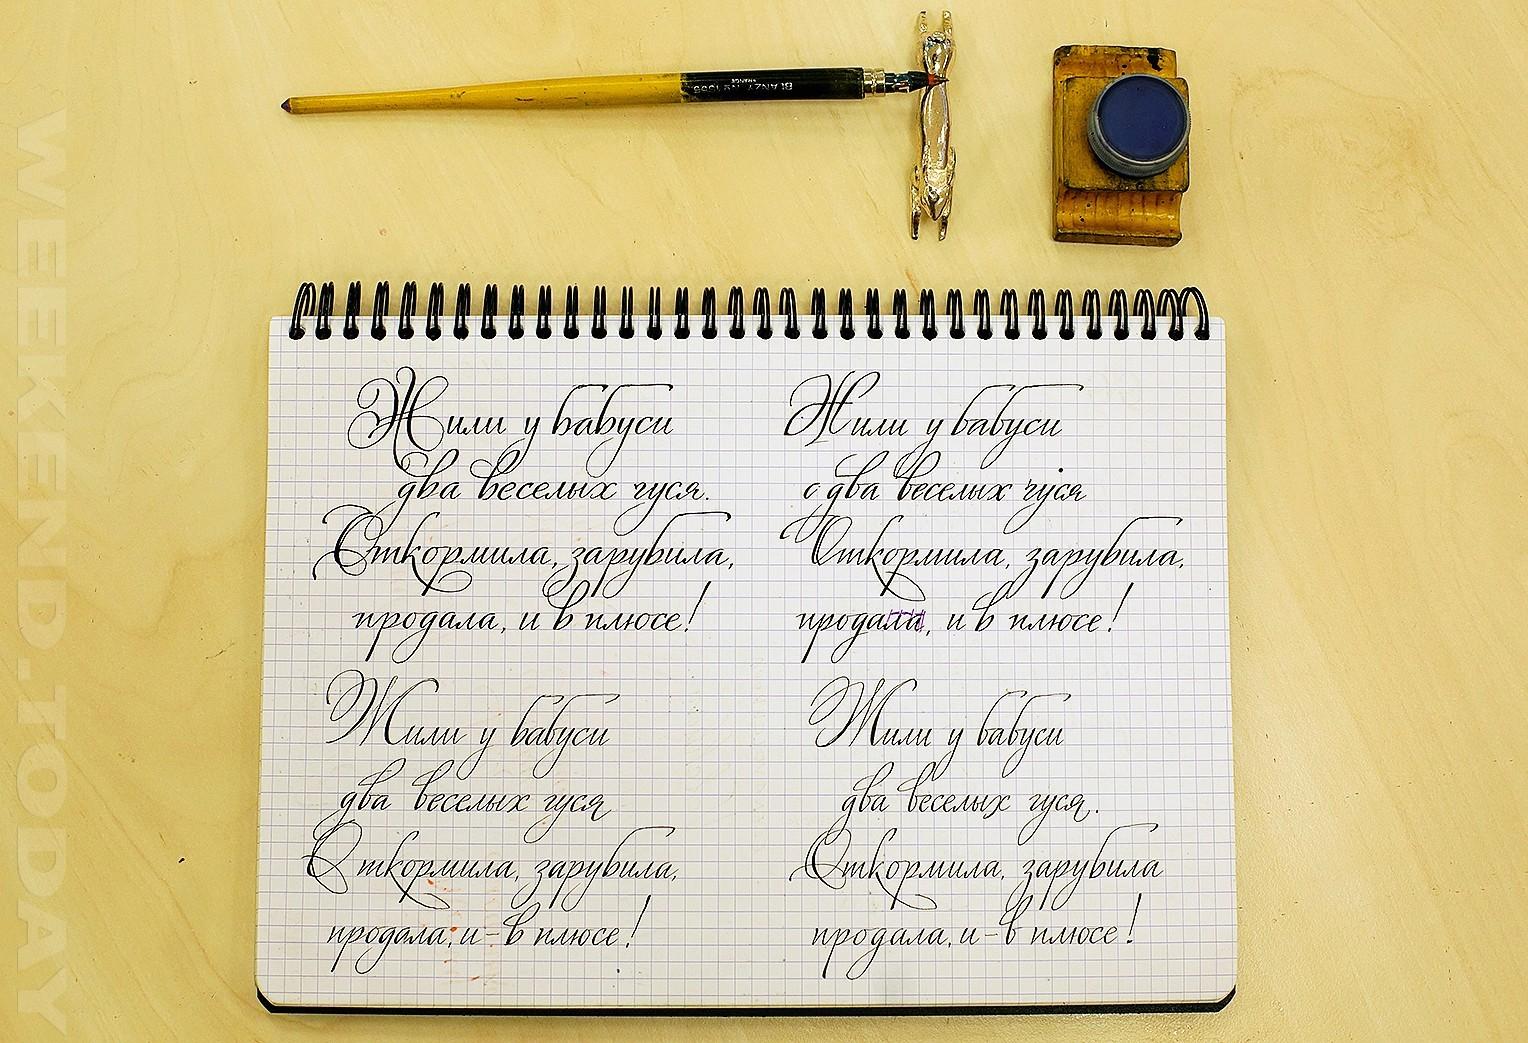 WEEKEND.TODAY
BLANZY
FRANCE
Жили у бабуси
два веселых гуся.
Откормила, зарубила,
продала, и в плюсе!
Жили у бабуси
о два веселых гуся
Откормила, зарубила,
продала, и в плюсе!
Жили у бабуси
два веселых гуся
Откормила, зарубила,
продала, и - в плюсе!
Жили у бабуси
два веселых гуся.
Откормила, зарубила
продала, и - в плюсе!